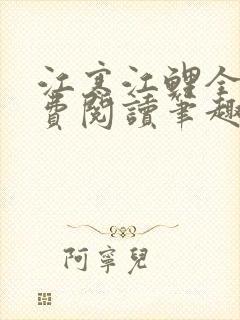 江寒江鯉全
費閱讀筆趣
阿寧兒